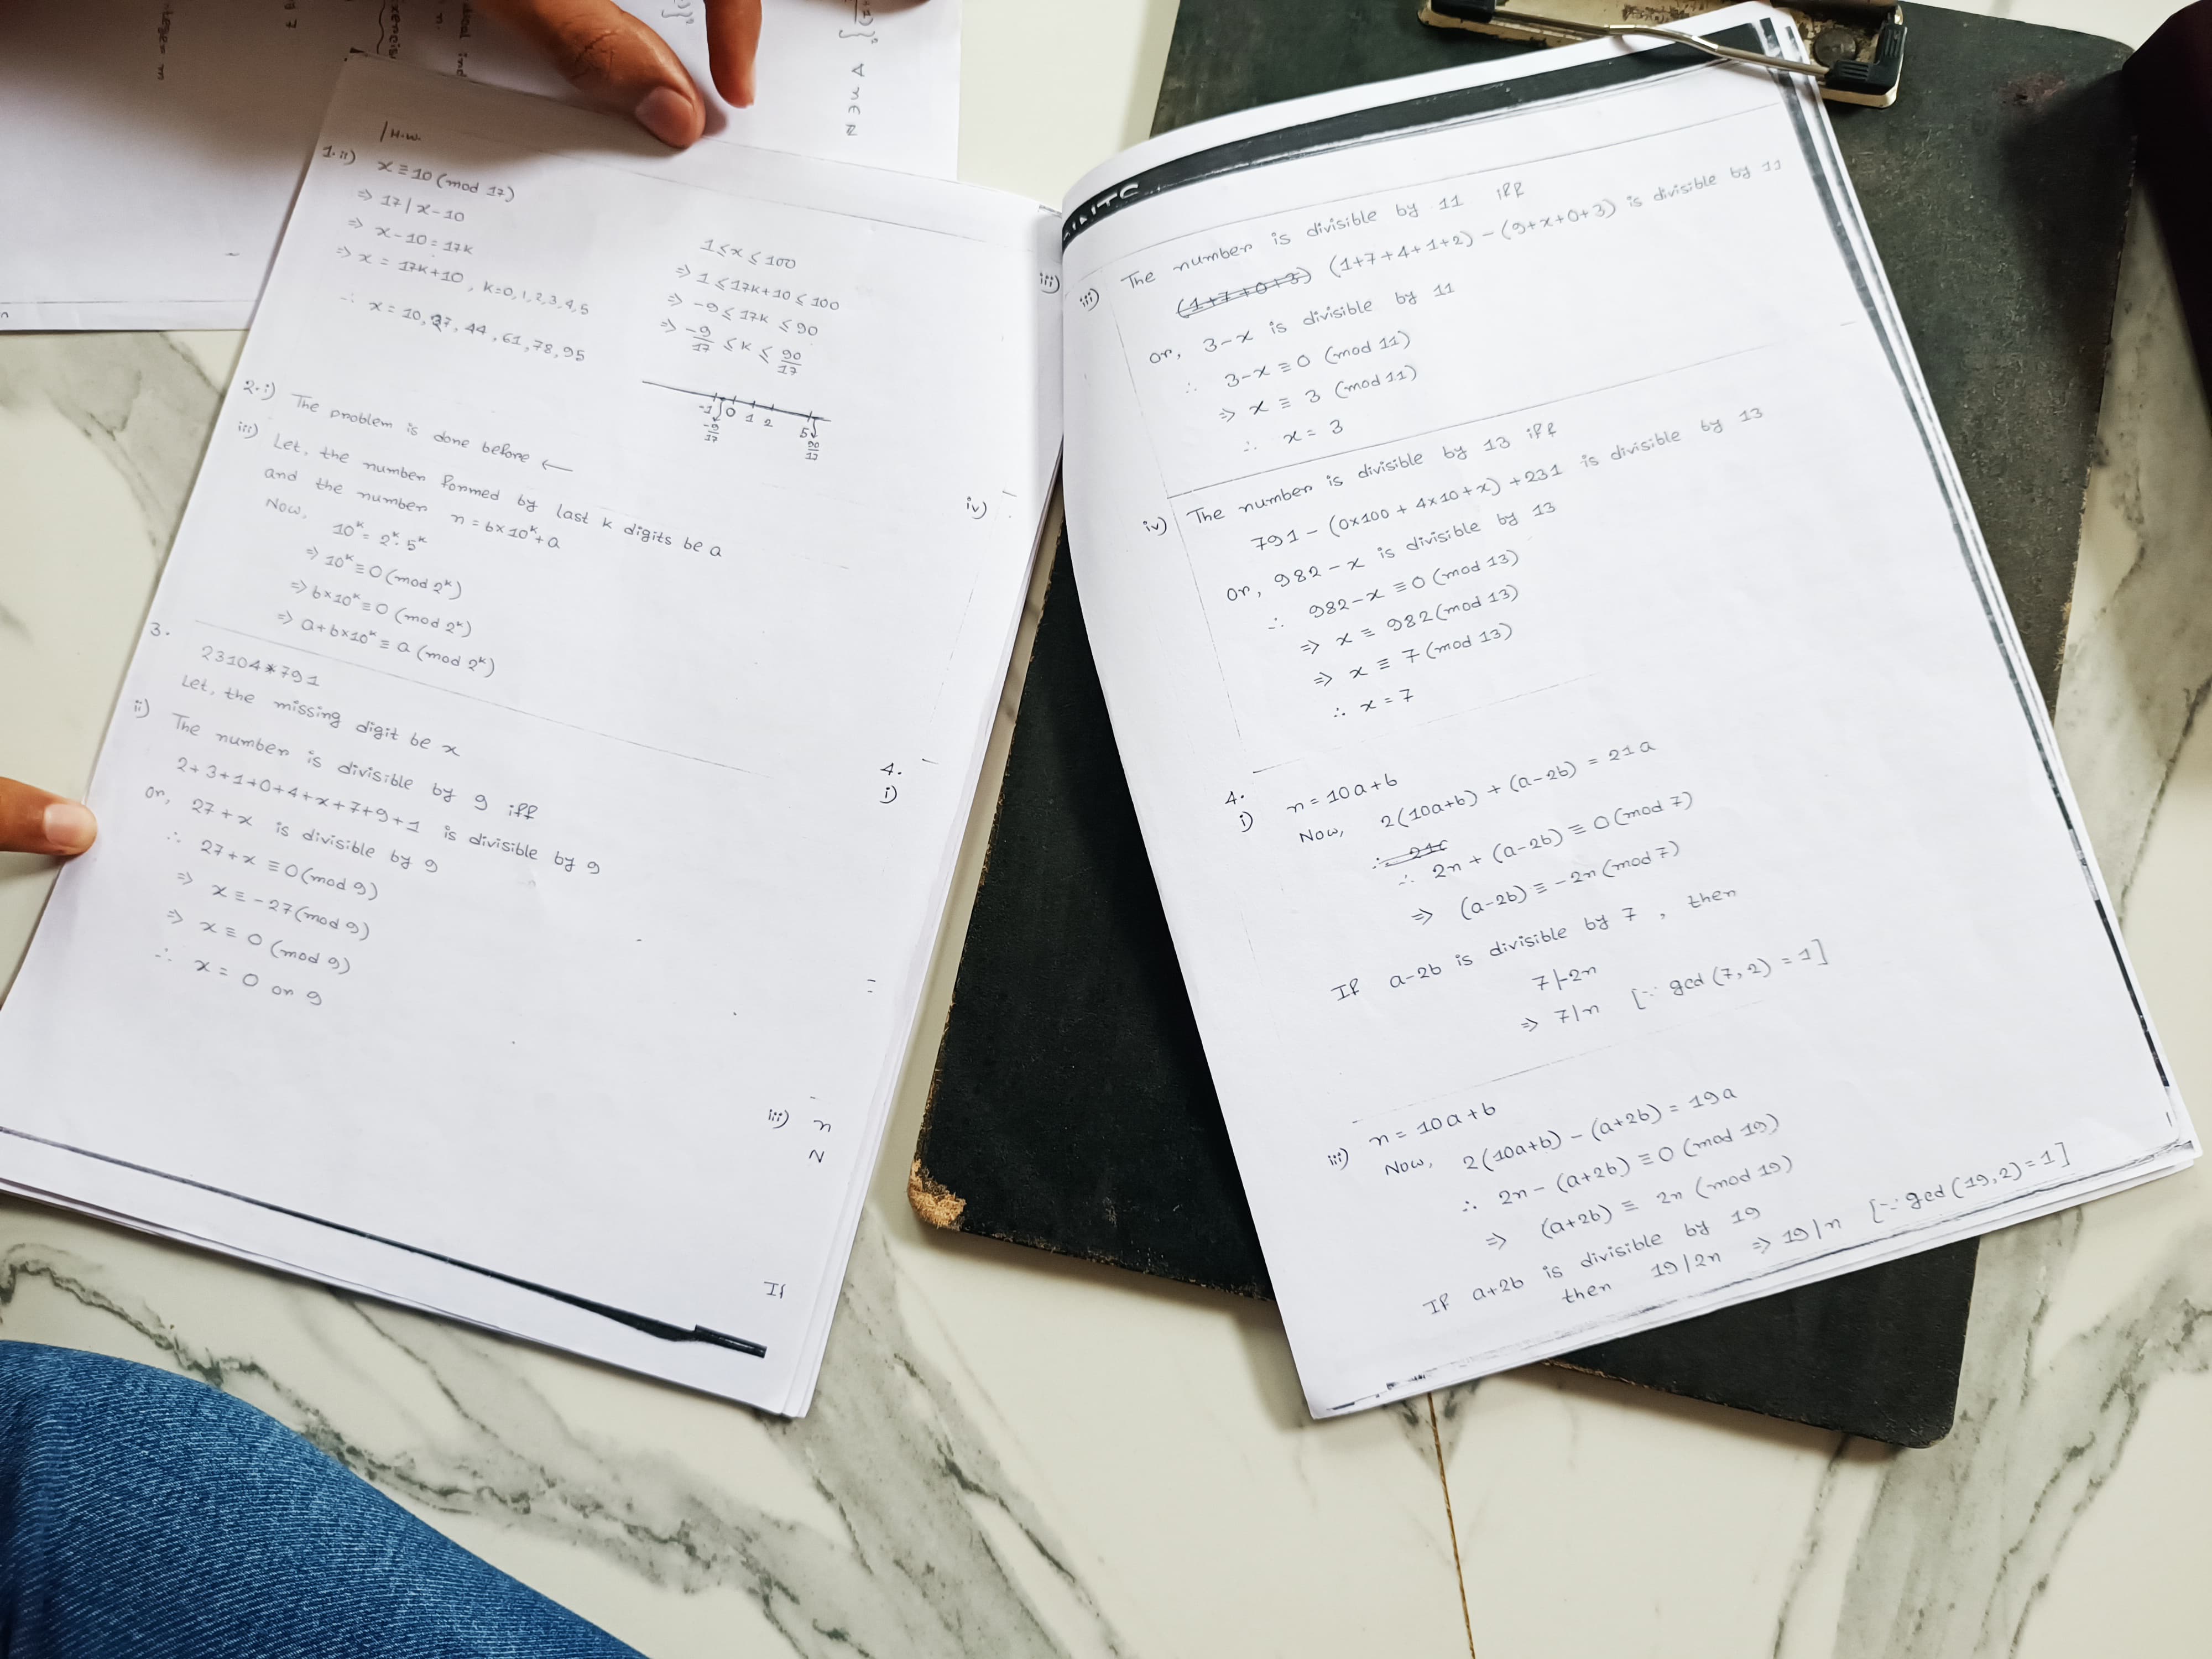 H.W.
1. ii) x ≡ 10 (mod 17)
⇒ 17 | x-10
⇒ x-10 = 17k
⇒ x = 17k+10 , k=0,1,2,3,4,5
∴ x = 10, 27, 44, 61, 78, 95
1 ≤ x ≤ 100
⇒ 1 ≤ 17k+10 ≤ 100
⇒ -9 ≤ 17k ≤ 90
⇒ -9/17 ≤ k ≤ 90/17
-1 0 1 2 5
-9/17 90/17
2. i) The problem is done before ←
iii) Let, the number formed by last k digits be a
and the number n = b×10^k+a
Now, 10^k = 2^k. 5^k
⇒ 10^k ≡ 0 (mod 2^k)
⇒ b×10^k ≡ 0 (mod 2^k)
⇒ a+b×10^k ≡ a (mod 2^k)
3. 23104*791
Let, the missing digit be x
ii) The number is divisible by 9 iff
2+3+1+0+4+x+7+9+1 is divisible by 9
or, 27+x is divisible by 9
∴ 27+x ≡ 0 (mod 9)
⇒ x ≡ -27 (mod 9)
⇒ x ≡ 0 (mod 9)
∴ x = 0 or 9
iii)
iv)
4.
i)
iii) n
N
If
iii) The number is divisible by 11 iff
(1+7+0+3) (1+7+4+1+2) - (9+x+0+3) is divisible by 11
or, 3-x is divisible by 11
∴ 3-x ≡ 0 (mod 11)
⇒ x ≡ 3 (mod 11)
∴ x = 3
iv) The number is divisible by 13 iff
791 - (0×100 + 4×10+x) + 231 is divisible by 13
or, 982 - x is divisible by 13
∴ 982-x ≡ 0 (mod 13)
⇒ x ≡ 982 (mod 13)
⇒ x ≡ 7 (mod 13)
∴ x = 7
4.
i) n = 10a+b
Now, 2(10a+b) + (a-2b) = 21a
∴ 2n + (a-2b) ≡ 0 (mod 7)
⇒ (a-2b) ≡ -2n (mod 7)
If a-2b is divisible by 7 , then
7|-2n
⇒ 7|n [∵ gcd (7,2) = 1]
iii) n = 10a+b
Now, 2(10a+b) - (a+2b) = 19a
∴ 2n - (a+2b) ≡ 0 (mod 19)
⇒ (a+2b) ≡ 2n (mod 19)
If a+2b is divisible by 19
then 19|2n ⇒ 19|n [∵ gcd (19,2) = 1]